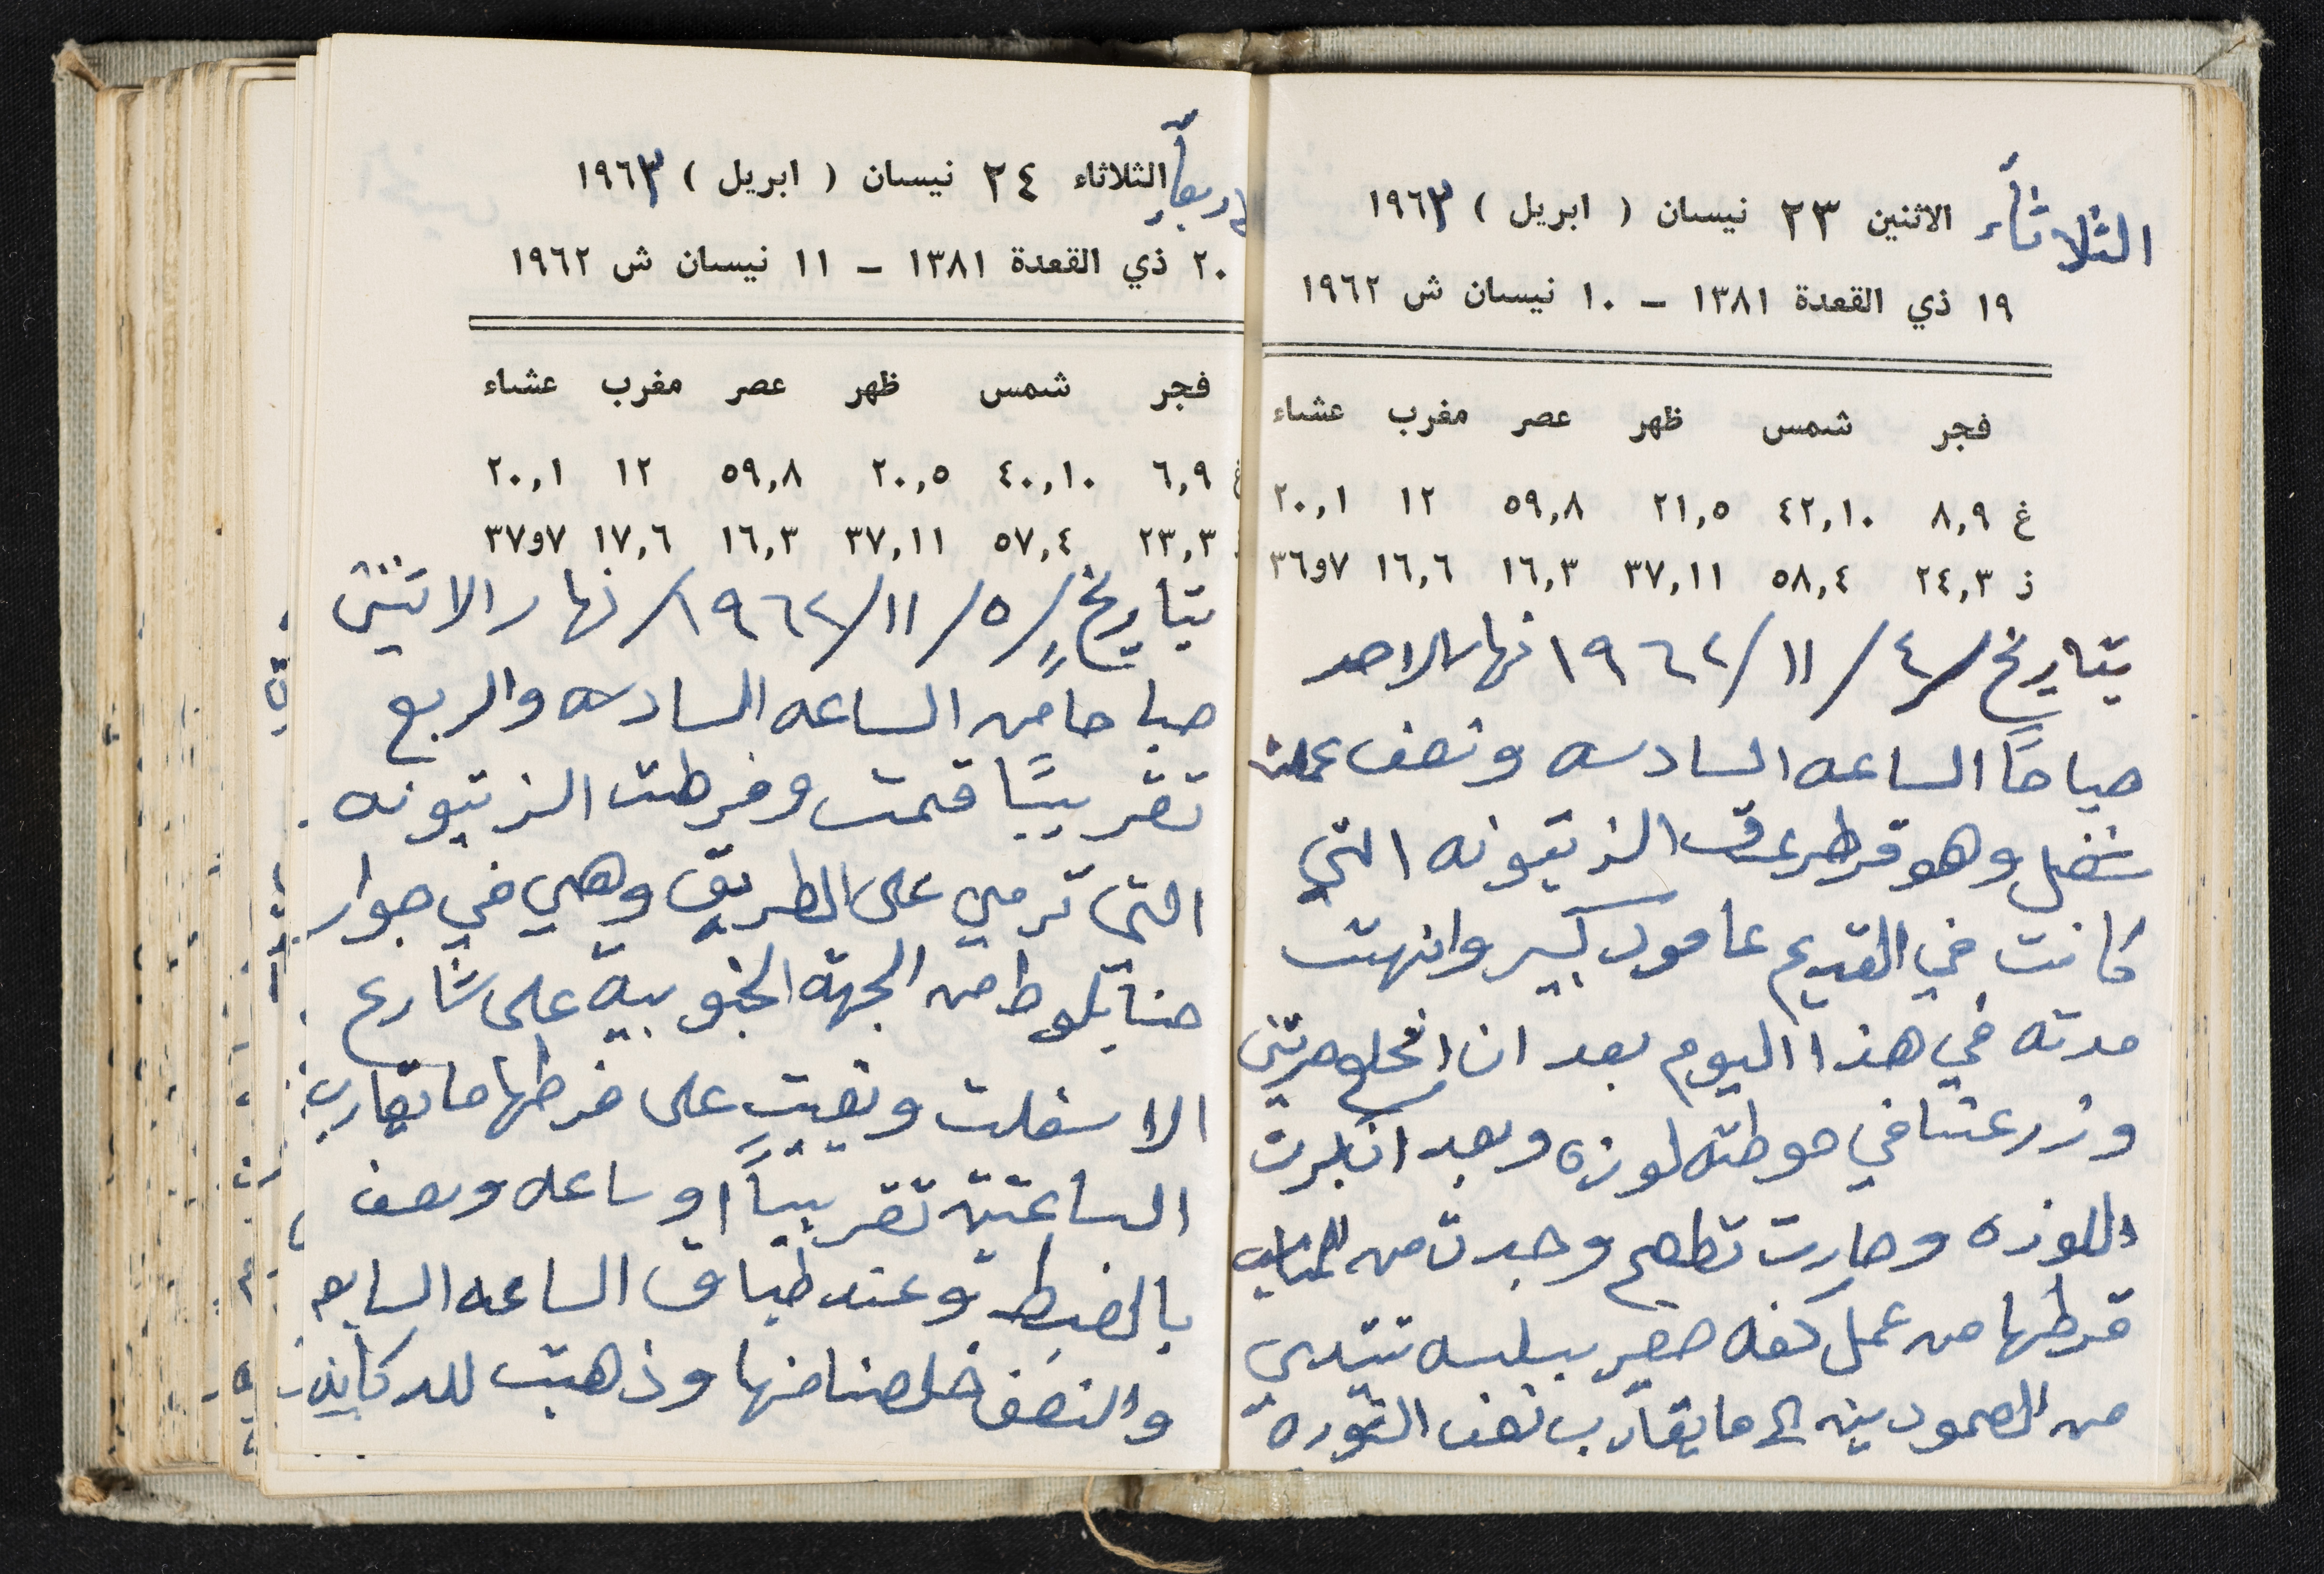 الثلاثاء الاثنين ٢٣ نيسان ( ابريل ) ١٩٦٣
١٩ ذي القعدة ١٣٨١ – ١٠ نيسان ش ١٩٦٢
فجر شمس ظهر عصر مغرب عشاء
غ ٨,٩ ٤٢,١٠ ٢١,٥ ٥٩,٨ ١٢ ٢٠,١
ز ٢٤,٣ ٥٨,٤ ٣٧,١١ ١٦,٣ ١٦,٦ ٧و٣٦
بتاريخ ٤/ ١١/ ١٩٦٢ نهار الاحد
صباحاً الساعه السادسه ونصف عملت
شغل وهو قرط عرق الزيتونه التي
كانت في القديم عامود كبير وانهت
مدته في هذا اليوم بعد ان
وزرعنا في حوطته لوزه وبعد ان كبرت
اللوزه وصارت تطعم وجدت من المناسب
قرطها من عمل كفه صغير بلبسه تبتدي
من العمودين الى ما يقارب نصف
الاربعاء الثلاثاء ٢٤ نيسان ( ابريل ) ١٩٦٣
٢٠ ذي القعدة ١٣٨١ – ١١ نيسان ش ١٩٦٢
فجر شمس ظهر عصر مغرب عشاء
٦,٩ ٤٠,١٠ ٢٠,٥ ٥٩,٨ ١٢ ٢٠,١
٢٣,٣ ٥٧,٤ ٣٧,١١ ١٦,٣ ١٧,٦ ٧و٣٧
بتاريخ /٥/ ١١/ ١٩٦٢/ نهار الاثنين
صباحا من الساعه السادسه والربع
تقريبًا قمت وفرطت الزيتونه
التي ترمي على الطريق وهي في جوار
من الجهة الجنوبية على شارع
الاسفلت وبقيت على فرطها ما يقارب
الساعتين تقريباً او ساعه ونصف
بالضبط وعند طباق الساعه السابعه
والنصف خلصنا منها وذهبت للدكان